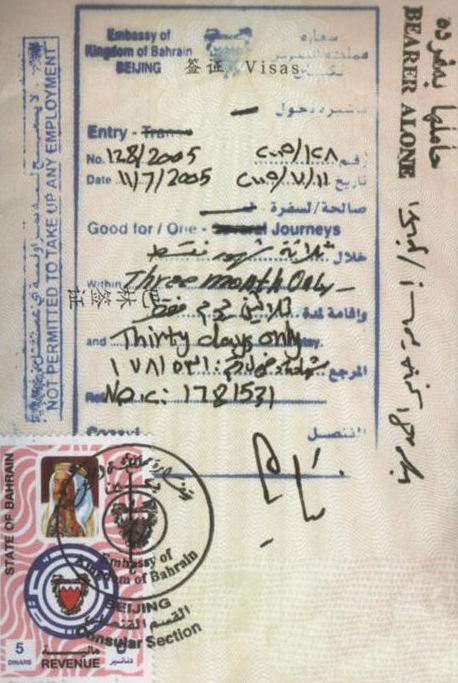 Embassy of
Kingdom of Bahrain
BEIJING
سفارة
مملكة البحرين
签证 Visas
تأشيرة دخول
Entry -
No. 128/2005
رقم ١٢٨/٢٠٠٥
Date 11/7/2005
تاريخ ١١/٧/٢٠٠٥
صالحة/لسفرة
Good for / One - Several Journeys
خلال ثلاثة شهور فقط
Within Three month Only
وإقامة لمدة ثلاثين يوم فقط
and Thirty days only stay.
المرجع
١٧٨١٥٣١
No.c: 1781531
Consul
القنصل
لا يسمح له بمزاولة أي عمل
NOT PERMITTED TO TAKE UP ANY EMPLOYMENT
签证
حاملها بمفرده
BEARER ALONE
STATE OF BAHRAIN
5
DINARS
REVENUE
مالية
٥
دنانير
Embassy of
Kingdom of Bahrain
BEIJING
القسم القنصلي
Consular Section